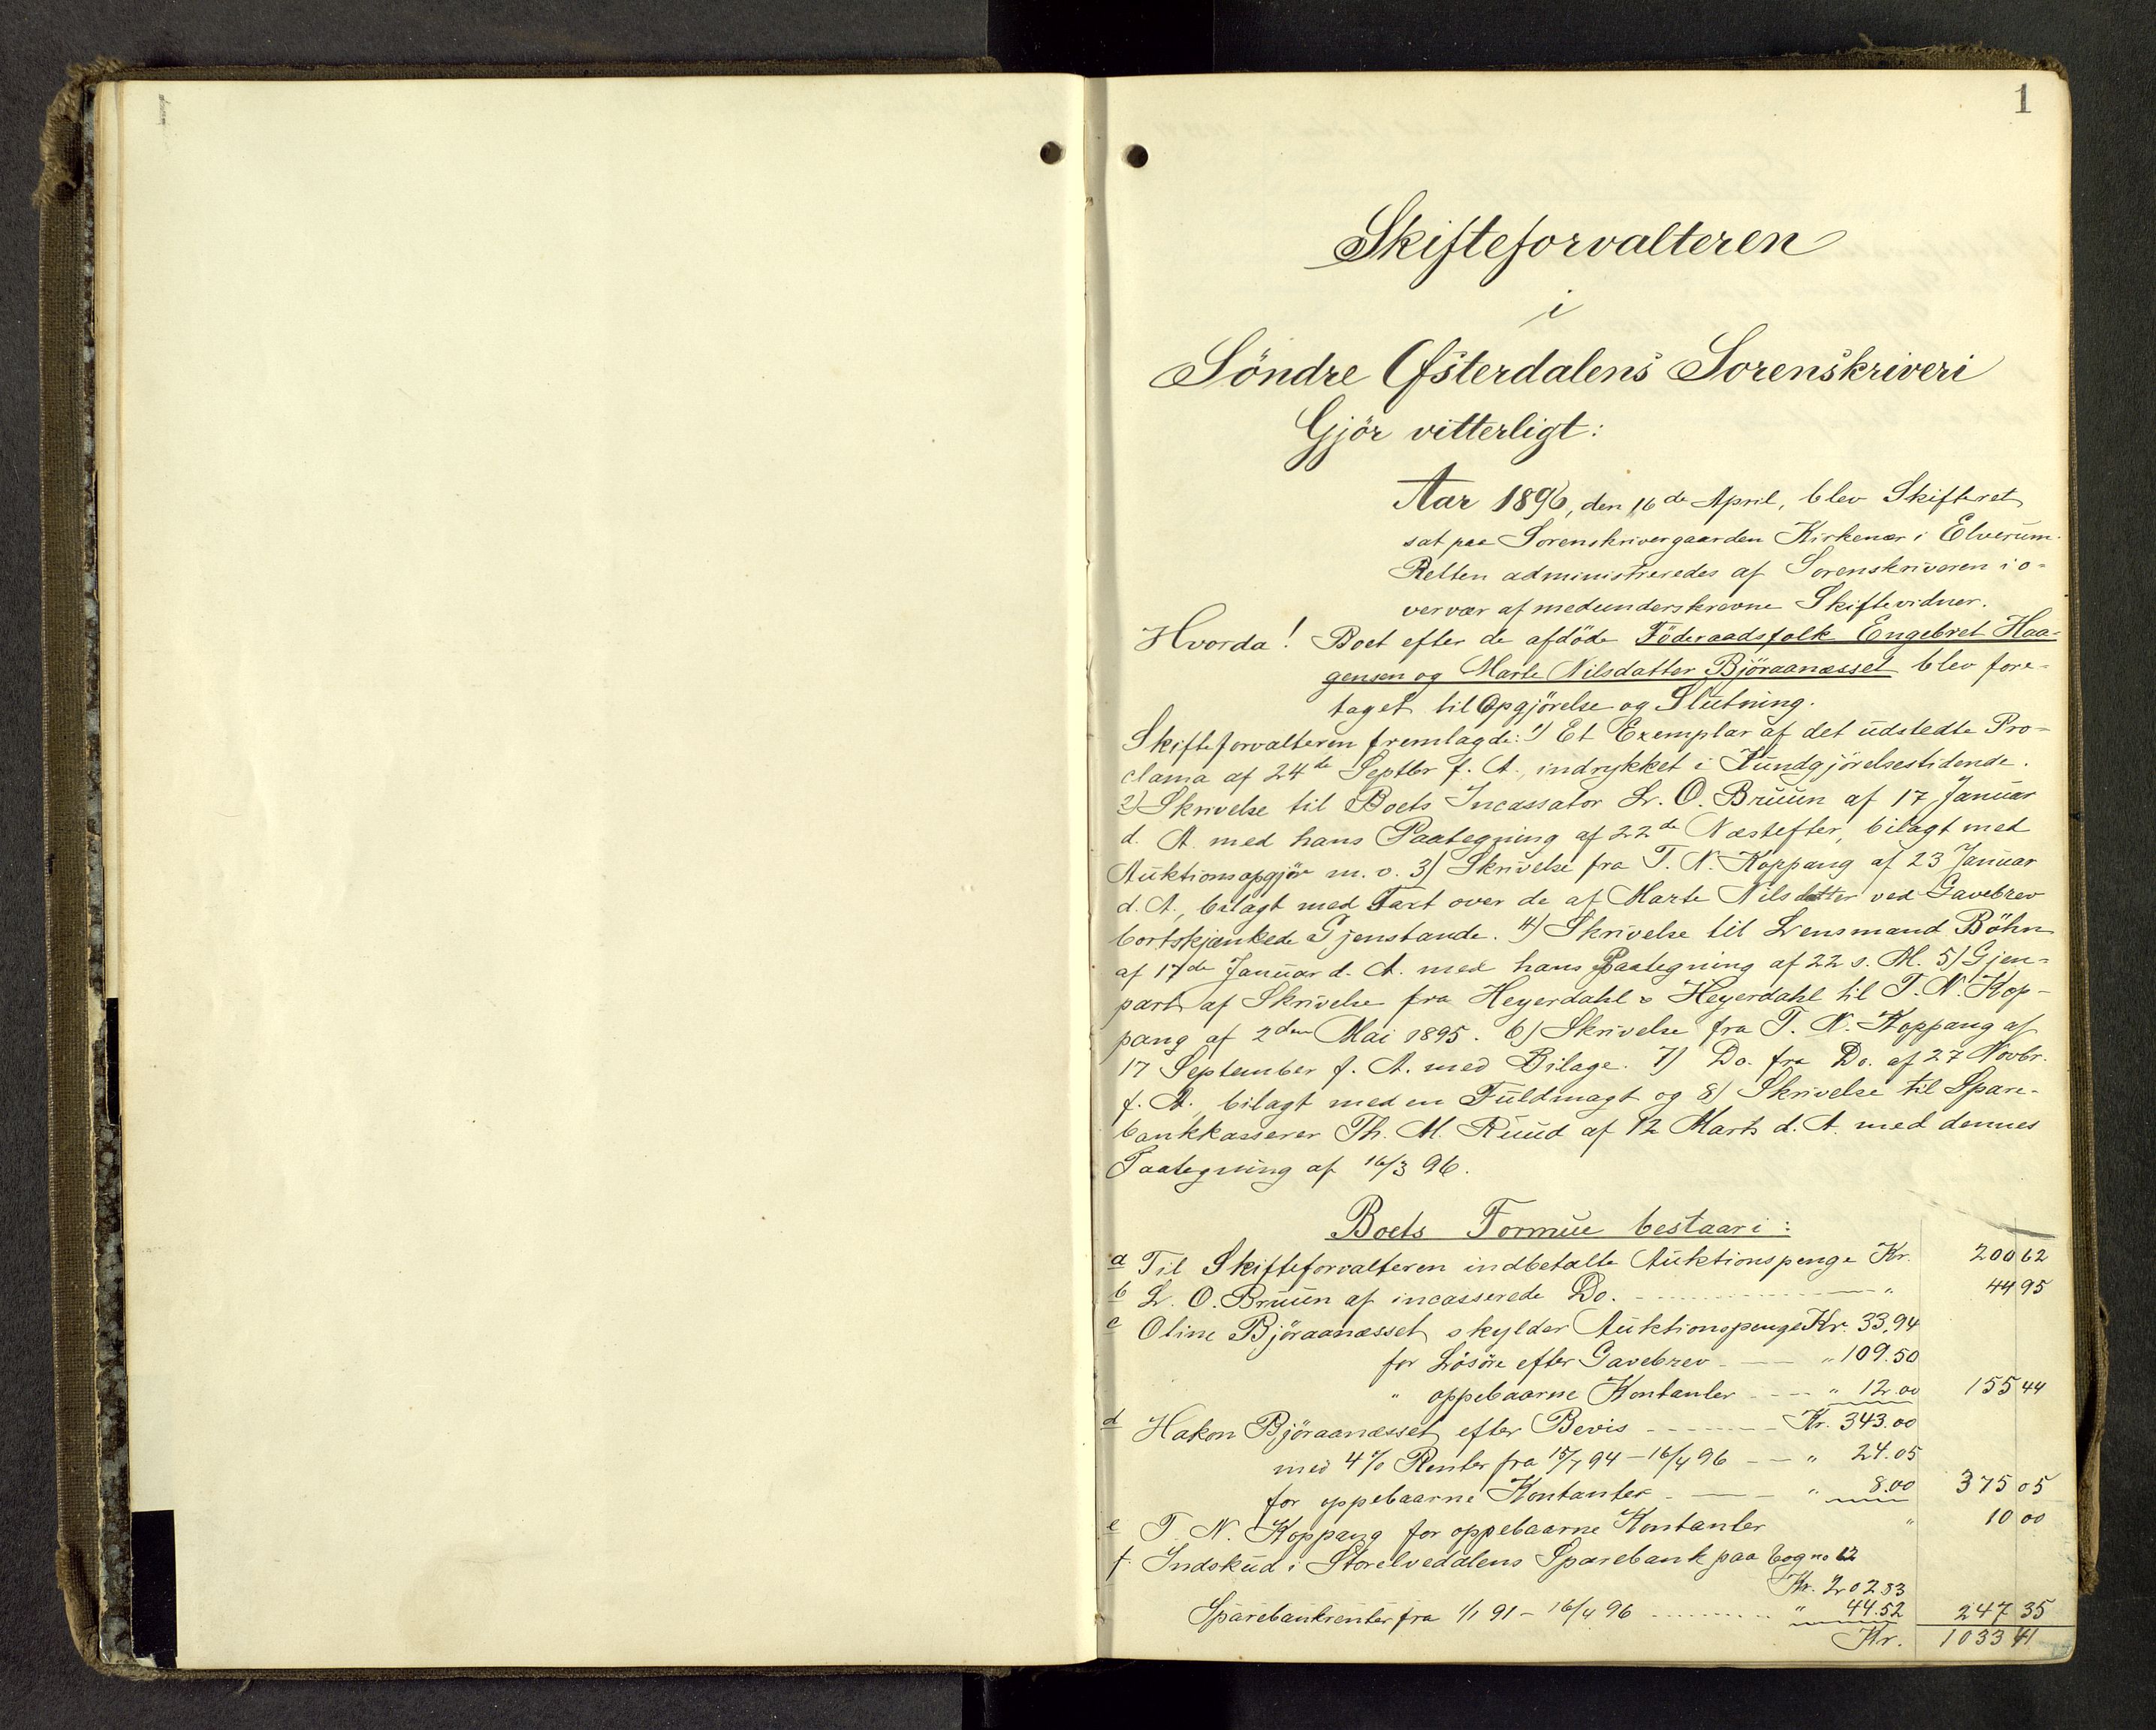 1
Skifteforvalteren
i
Söndre Østerdalens Sorenskriveri
Gjör vitterligt:
Aar 1896, den 16de April, blev Skifteret
sat paa Sorenskrivergaarden Kirkenær i Elverum.
Retten administreredes af Sorenskriveren i o-
vervær af medunderskrevne Skiftevidner.
Hvorda! Boet efter de afdöde Föderaadsfolk Engebret Haa-
gensen og Marte Nilsdatter Björaanæsset blev fore-
taget til Opgjörelse og Slutning.
Skifteforvalteren fremlagde: 1) Et Exemplar af det udstedte Pro-
clama af 24de Septbr f. A., indrykket i Kundgjörelsestidende.
2) Skrivelse til Boets Incassator L. O. Bruun af 17 Januar
d. A. med hans Paategning af 22de Næstefter, bilagt med
Auktionsopgjör m. v. 3) Skrivelse fra T. N. Koppang af 23 Januar
d. A., bilagt med Taxt over de af Marte Nilsdatter ved Gavebrev
bortskjænkede Gjenstande. 4) Skrivelse til Lensmand Böhn
af 17de Januar d. A. med hans Paategning af 22 s. M. 5) Gjen-
part af Skrivelse fra Heyerdahl & Heyerdahl til T. N. Kop-
pang af 2den Mai 1895. 6) Skrivelse fra T. N. Koppang af
17 September f. A. med Bilage. 7) Do. fra Do. af 27 Novbr.
f. A., bilagt med en Fuldmagt og 8) Skrivelse til Spare-
bankkasserer Th. M. Ruud af 12 Marts d. A. med dennes
Paategning af 16/3 96.
Boets Formue bestaar i:
a Til Skifteforvalteren indbetalte Auktionspenge Kr. 200 62
b L. O. Bruun af incasserede Do. " 44 95
c Oline Björaanæsset skylder Auktionspenge Kr. 33,94
for Lösöre efter Gavebrev " 109.50
" oppebaarne Kontanter " 12.00 155 44
d Hakon Björaanæsset efter Bevis Kr. 343.00
med 4% Renter fra 15/7 94 - 16/4 96 " 24.05
for oppebaarne Kontanter " 8.00 375 05
e T. N. Koppang for oppebaarne Kontanter " 10 00
f. Indskud i Storelvedalens Sparebank paa bog no 12
Kr. 202 83
Sparebankrenter fra 1/1 91 - 16/4 96 " 44.52 247 35
Kr. 1033 41